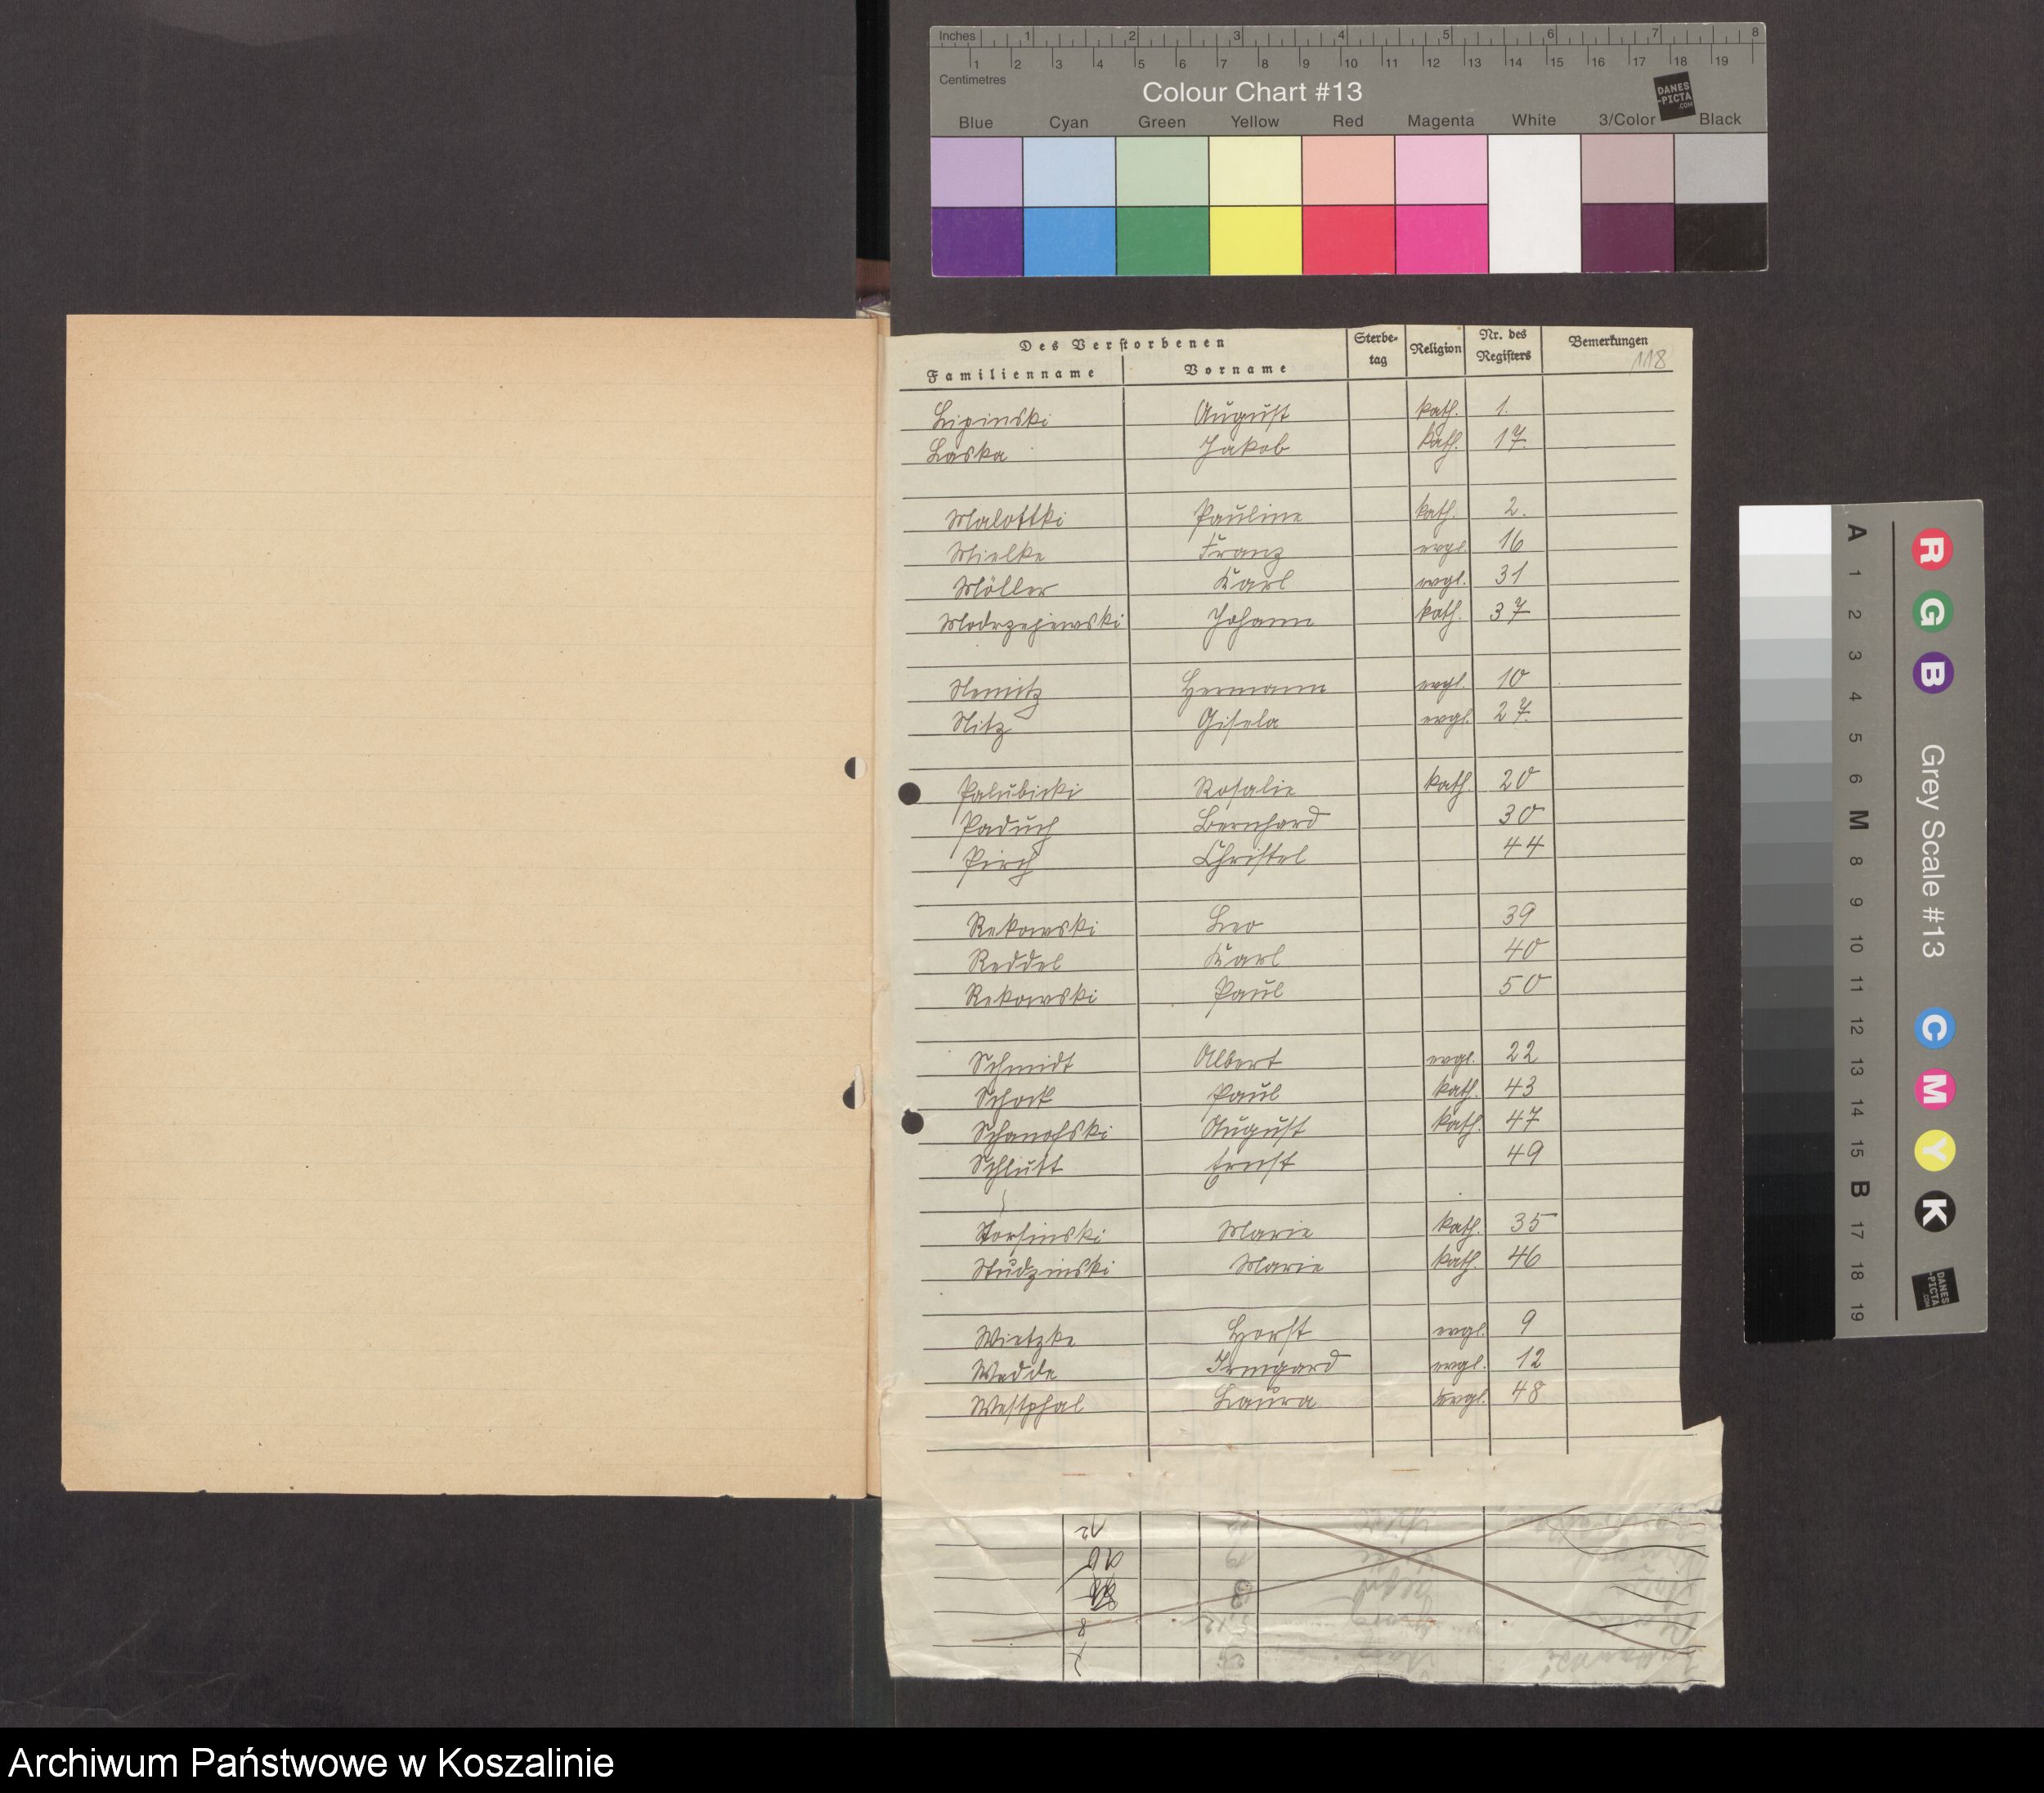 Inches 1 2 3 4 5 6 7 8
1 2 3 4 5 6 7 8 9 10 11 12 13 14 15 16 17 18 19
Centimetres
Colour Chart #13
DANES-PICTA.COM
Blue Cyan Green Yellow Red Magenta White 3/Color Black
Des Verstorbenen Sterbetag Religion Nr. des Registers Bemerkungen
Familienname Vorname
118
Lipinski August kath. 1.
Laska Jakob kath. 17.
Malottki Pauline kath. 2.
Mielke Franz evgl. 16
Möller Karl evgl. 31
Modrzejewski Johann kath. 37
Nemitz Hermann evgl. 10
Nitz Gisela evgl. 27.
Palubicki Rosalie kath. 20
Paduch Bernhard 30
Pirch Christel 44
Rekowski Leo 39
Reddel Karl 40
Rekowski Paul 50
Schmidt Albert evgl. 22
Schock Paul kath. 43
August kath. 47
Schlutt Ernst 49
Marie kath. 35
Studzinski Marie kath. 46
Wietzke Horst evgl. 9
Wedde Irmgard evgl. 12
Westphal Laura evgl. 48
12
8
7
A 1 2 3 4 5 6 M 8 9 10 11 12 13 14 15 B 17 18 19
R G B Grey Scale #13 C M Y K
DANES-PICTA.COM
Archiwum Państwowe w Koszalinie